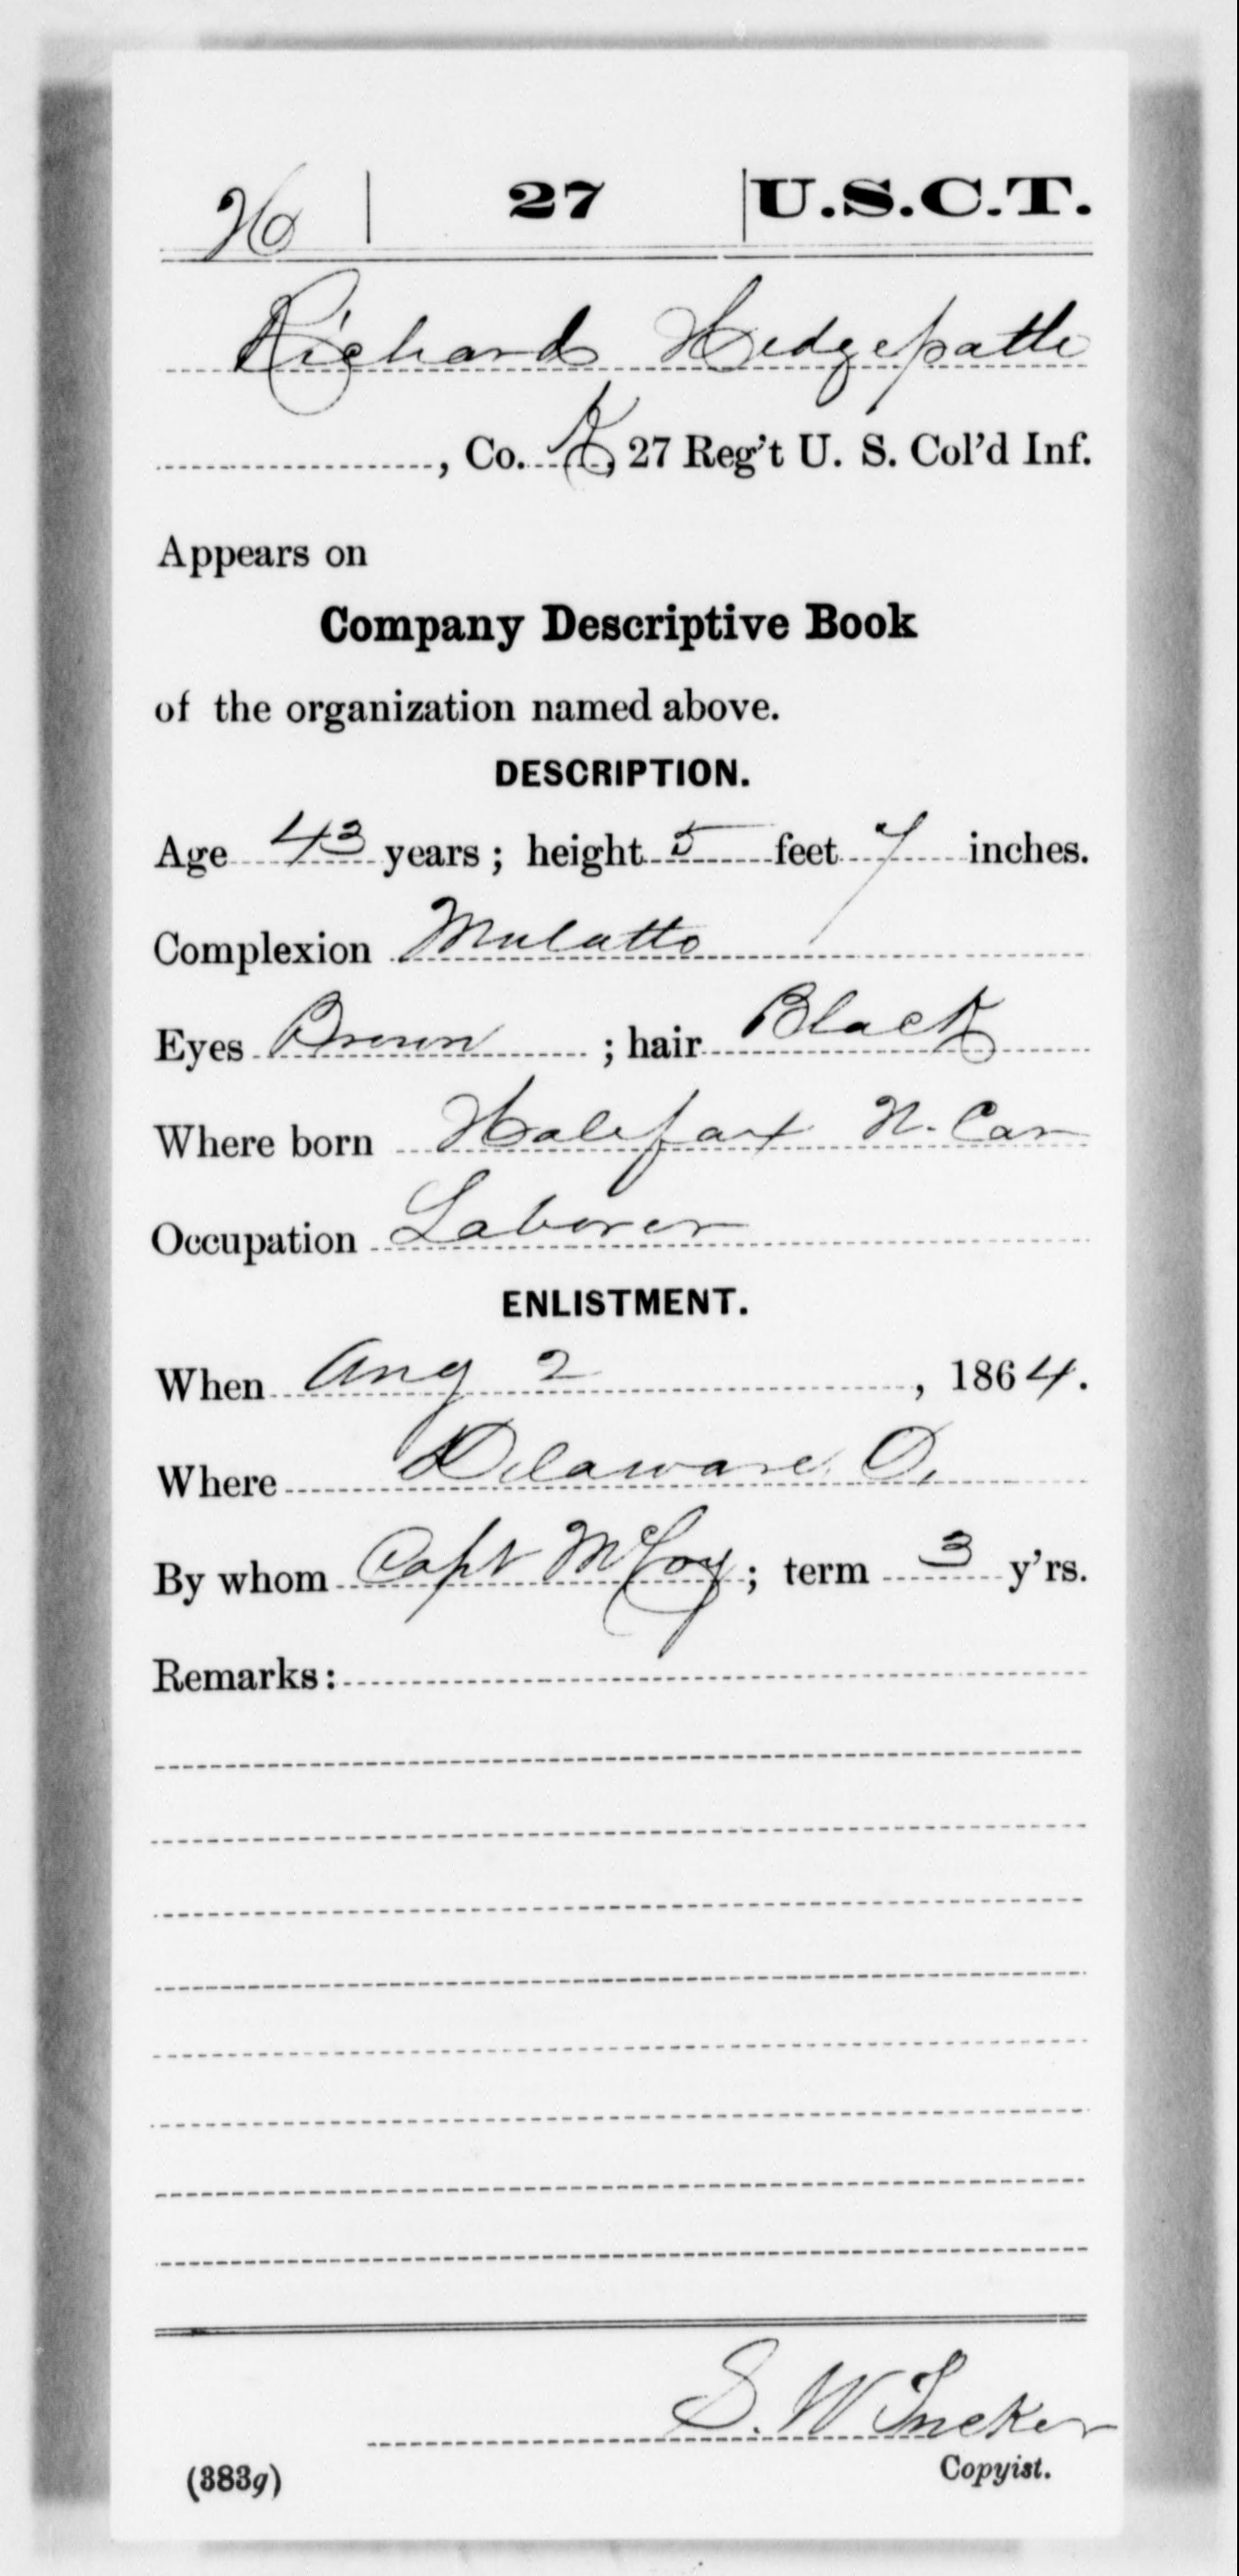 H | 27 | U.S.C.T.
Richard Hedgepath
, Co. K, 27 Reg't U. S. Col'd Inf.
Appears on
Company Descriptive Book
of the organization named above.
DESCRIPTION.
Age 43 years; height 5 feet 7 inches.
Complexion Mulatto
Eyes Brown ; hair Black
Where born Halifax N. Car
Occupation Laborer
ENLISTMENT.
When Aug 2, 1864.
Where Delaware O.
By whom Capt McCoy; term 3 y'rs.
Remarks:
S. W. Tucker
Copyist.
(383g)